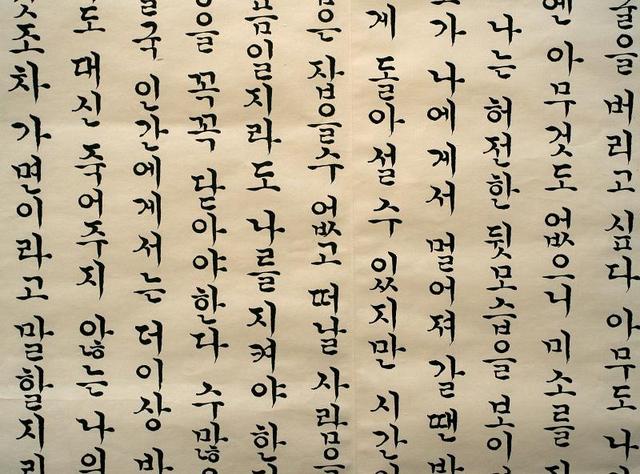 굴을 버리고 싶다 아무도 나
엔 아무것도 없으니 미소를
나는 허전한 뒷모습을 보이
가 나에게서 멀어져 갈 땐 바
게 돌아설 수 있지만 시간의
은 잡을수 없고 떠날 사람은
름일지라도 나를 지켜야 한
을 꼭꼭 닫아야한다 수많은
국 인간에게서는 더이상 바
도 대신 죽어주지 않는 나의
조차 가면이라고 말할지라